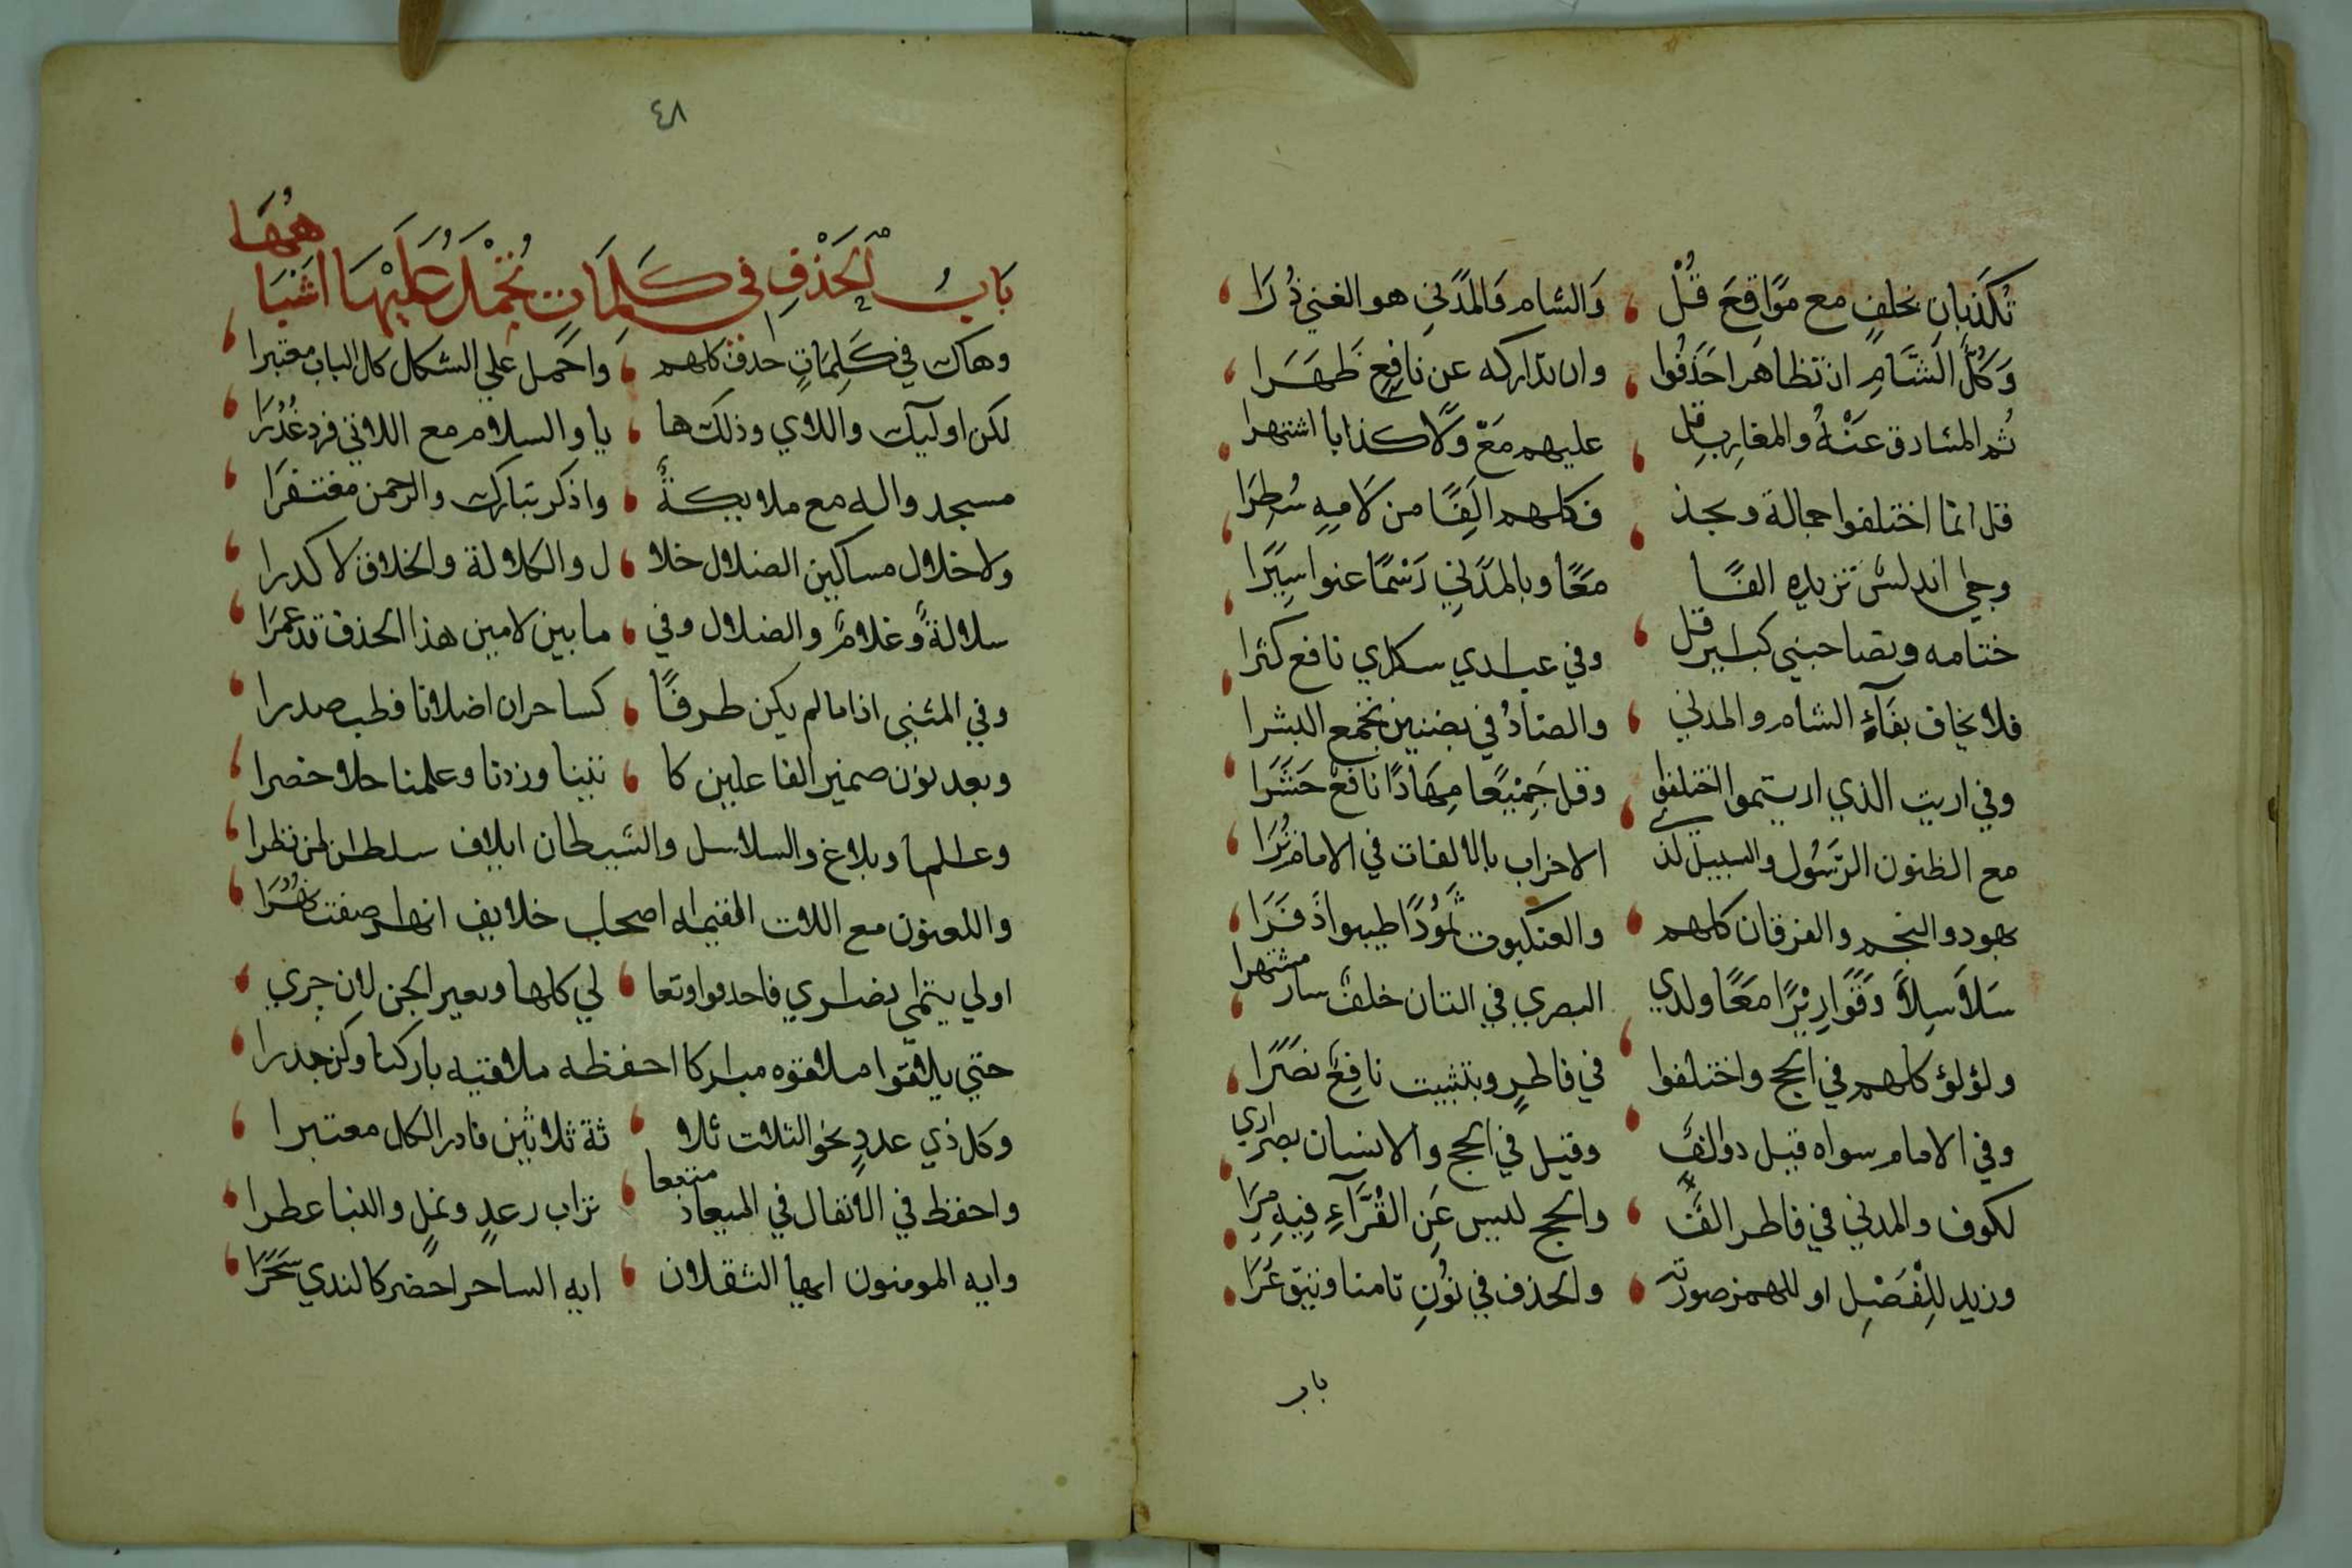 تُكَذِّبانِ بخلفٍ مع مَوَاقِعَ قُلْ والشام والمدني هو الغني ذُرَا
وَكُلُّ الشَّامِ ان تظاهرا حَذَفُوا وان تداركه عن نافعٍ ظَهَرَا
ثم المشارق عَنْهُ والمغارب قل عليهم مَعْ ولا كذابا اشتهرا
قل انما اختلفوا جمالة وبحذ ف كلهم الِفًا من لامِهِ سُطِرَا
وجيء اندلس تزيده الفًا مَعًا وبالمدني رَسْمًا عنوا سِيَرَا
ختامه وتصاحبني كبائر قل وفي عبادي سكاري نافع كثرا
فلا يخاف بِفَاءِ الشام والمدني والضادُ في بضنين تجمع البشرا
وفي اريت الذي اريتموا اختلفوا وقل جَمِيْعًا مِهَادًا نافعٌ حَشَرَا
مع الظنون الرَسُول والسبيل لدى الاحزاب بالالفات في الامام تُرَا
بهود والنجم والفرقان كلهم والعنكبوت ثمُوْدًا طيبوا ذَفَرَا
سَلاَسِلاً وَقَوَارِيْرًا مَعًا ولدي البصري في الثان خلفٌ سار مشتهرا
ولؤلؤ كلهم في الحج واختلفوا في فاطرٍ وبتثبيت نافِعٌ نَصَرَا
وفي الامام سواه قيل ذو الفٍ وقيل في الحج والانسان بصر اري
لكوف والمدني في فاطر الفٌ والحج ليس عَنِ القُرَّاءِ فِيهِ مِرَا
وزيد لِلْفَصْلِ او للهمز صورته والحذف في نُونِ تامنا وثيق عُرَا
باب
٤٨
بَابُ الْحَذْفِ في كَلِمَاتٍ تُحْمَلُ عَلَيْهَا اَشْبَاهُهَا
وهاك في كَلِمَاتٍ حذف كلهم واحمل علي الشكل كل الباب معتبرا
لكن اوليك واللاي وذلك ها يا والسلام مع اللاتي فرد غُدُرَا
مسجد واله مع ملايكةٌ واذكر تبارك والرحمن مغتفرَا
ولا خلال مساكين الضلال خلا ل والكلالة والخلاق لا كدرا
سلالةً وغلامٌ والضلال وفي ما بين لامين هذا الحذف قد عمرَا
وفي المثني اذا ما لم يكن طرفًا كساحران اضلانا فطب صدرا
وبعد نون ضمير الفاعلين كا تينا وزدنا وعلمنا حلا خضرا
وعالما وبلاغ والسلاسل والشيطان ايلاف سلطان لمن نظرا
واللعنون مع اللات القيمه اصحاب خلايف انهار صفت نُهُرَا
اولي يتمي نصاري فاحذفوا وتعا لي كلها وبغير الجن لان جري
حتي يلاقوا ملاقوه مباركا احفظه ملاقيه باركنا وكن حذرا
وكل ذي عددٍ نحو الثلاث ثلا ثة ثلاثين فادر الكل معتبرا
واحفظ في الانفال في الميعاد متبعا تراب رعدٍ ونملٍ والنبا عطرا
وايه المومنون ايها الثقلان ايه الساحر احضر كالندي سَحَرَا